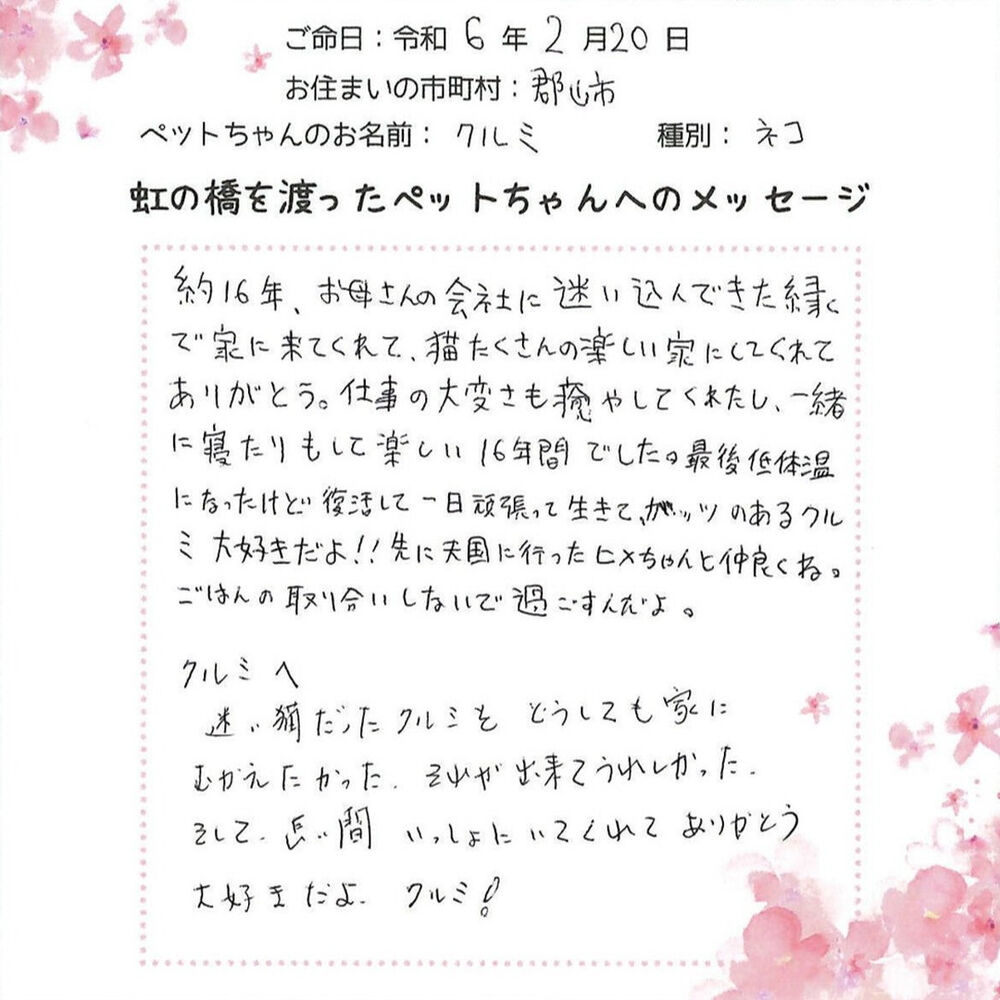 ご命日：令和 6 年 2 月20 日
お住まいの市町村：郡山市
ペットちゃんのお名前： クルミ 種別： ネコ
虹の橋を渡ったペットちゃんへのメッセージ
約16年、お母さんの会社に迷い込んできた縁
で家に来てくれて、猫たくさんの楽しい家にしてくれて
ありがとう。仕事の大変さも癒やしてくれたし、一緒
に寝たりもして楽しい16年間でした。最後低体温
になったけど復活して一日頑張って生きて、ガッツのあるクル
ミ大好きだよ!!先に天国に行ったヒメちゃんと仲良くね。
ごはんの取り合いしないで過ごすんだよ。
クルミへ
迷い猫だったクルミをどうしても家に
むかえたかった.それが出来てうれしかった.
そして.長い間いっしょにいてくれてありがとう
大好きだよ.クルミ!